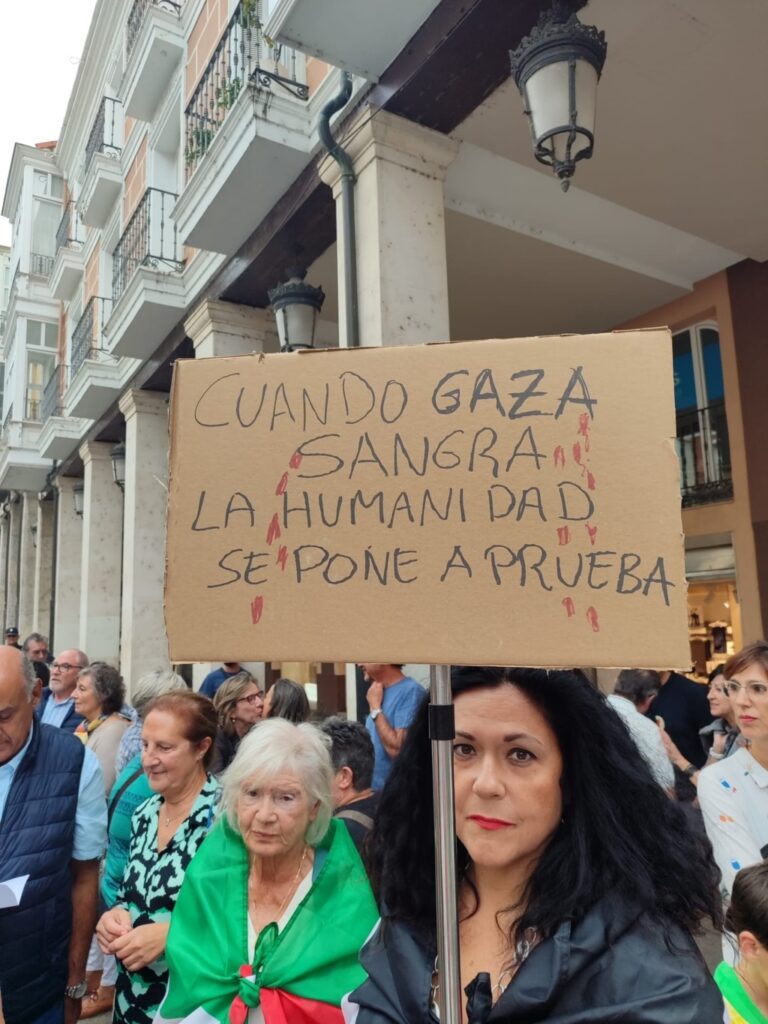 CUANDO GAZA
SANGRA
LA HUMANIDAD
SE PONE A PRUEBA